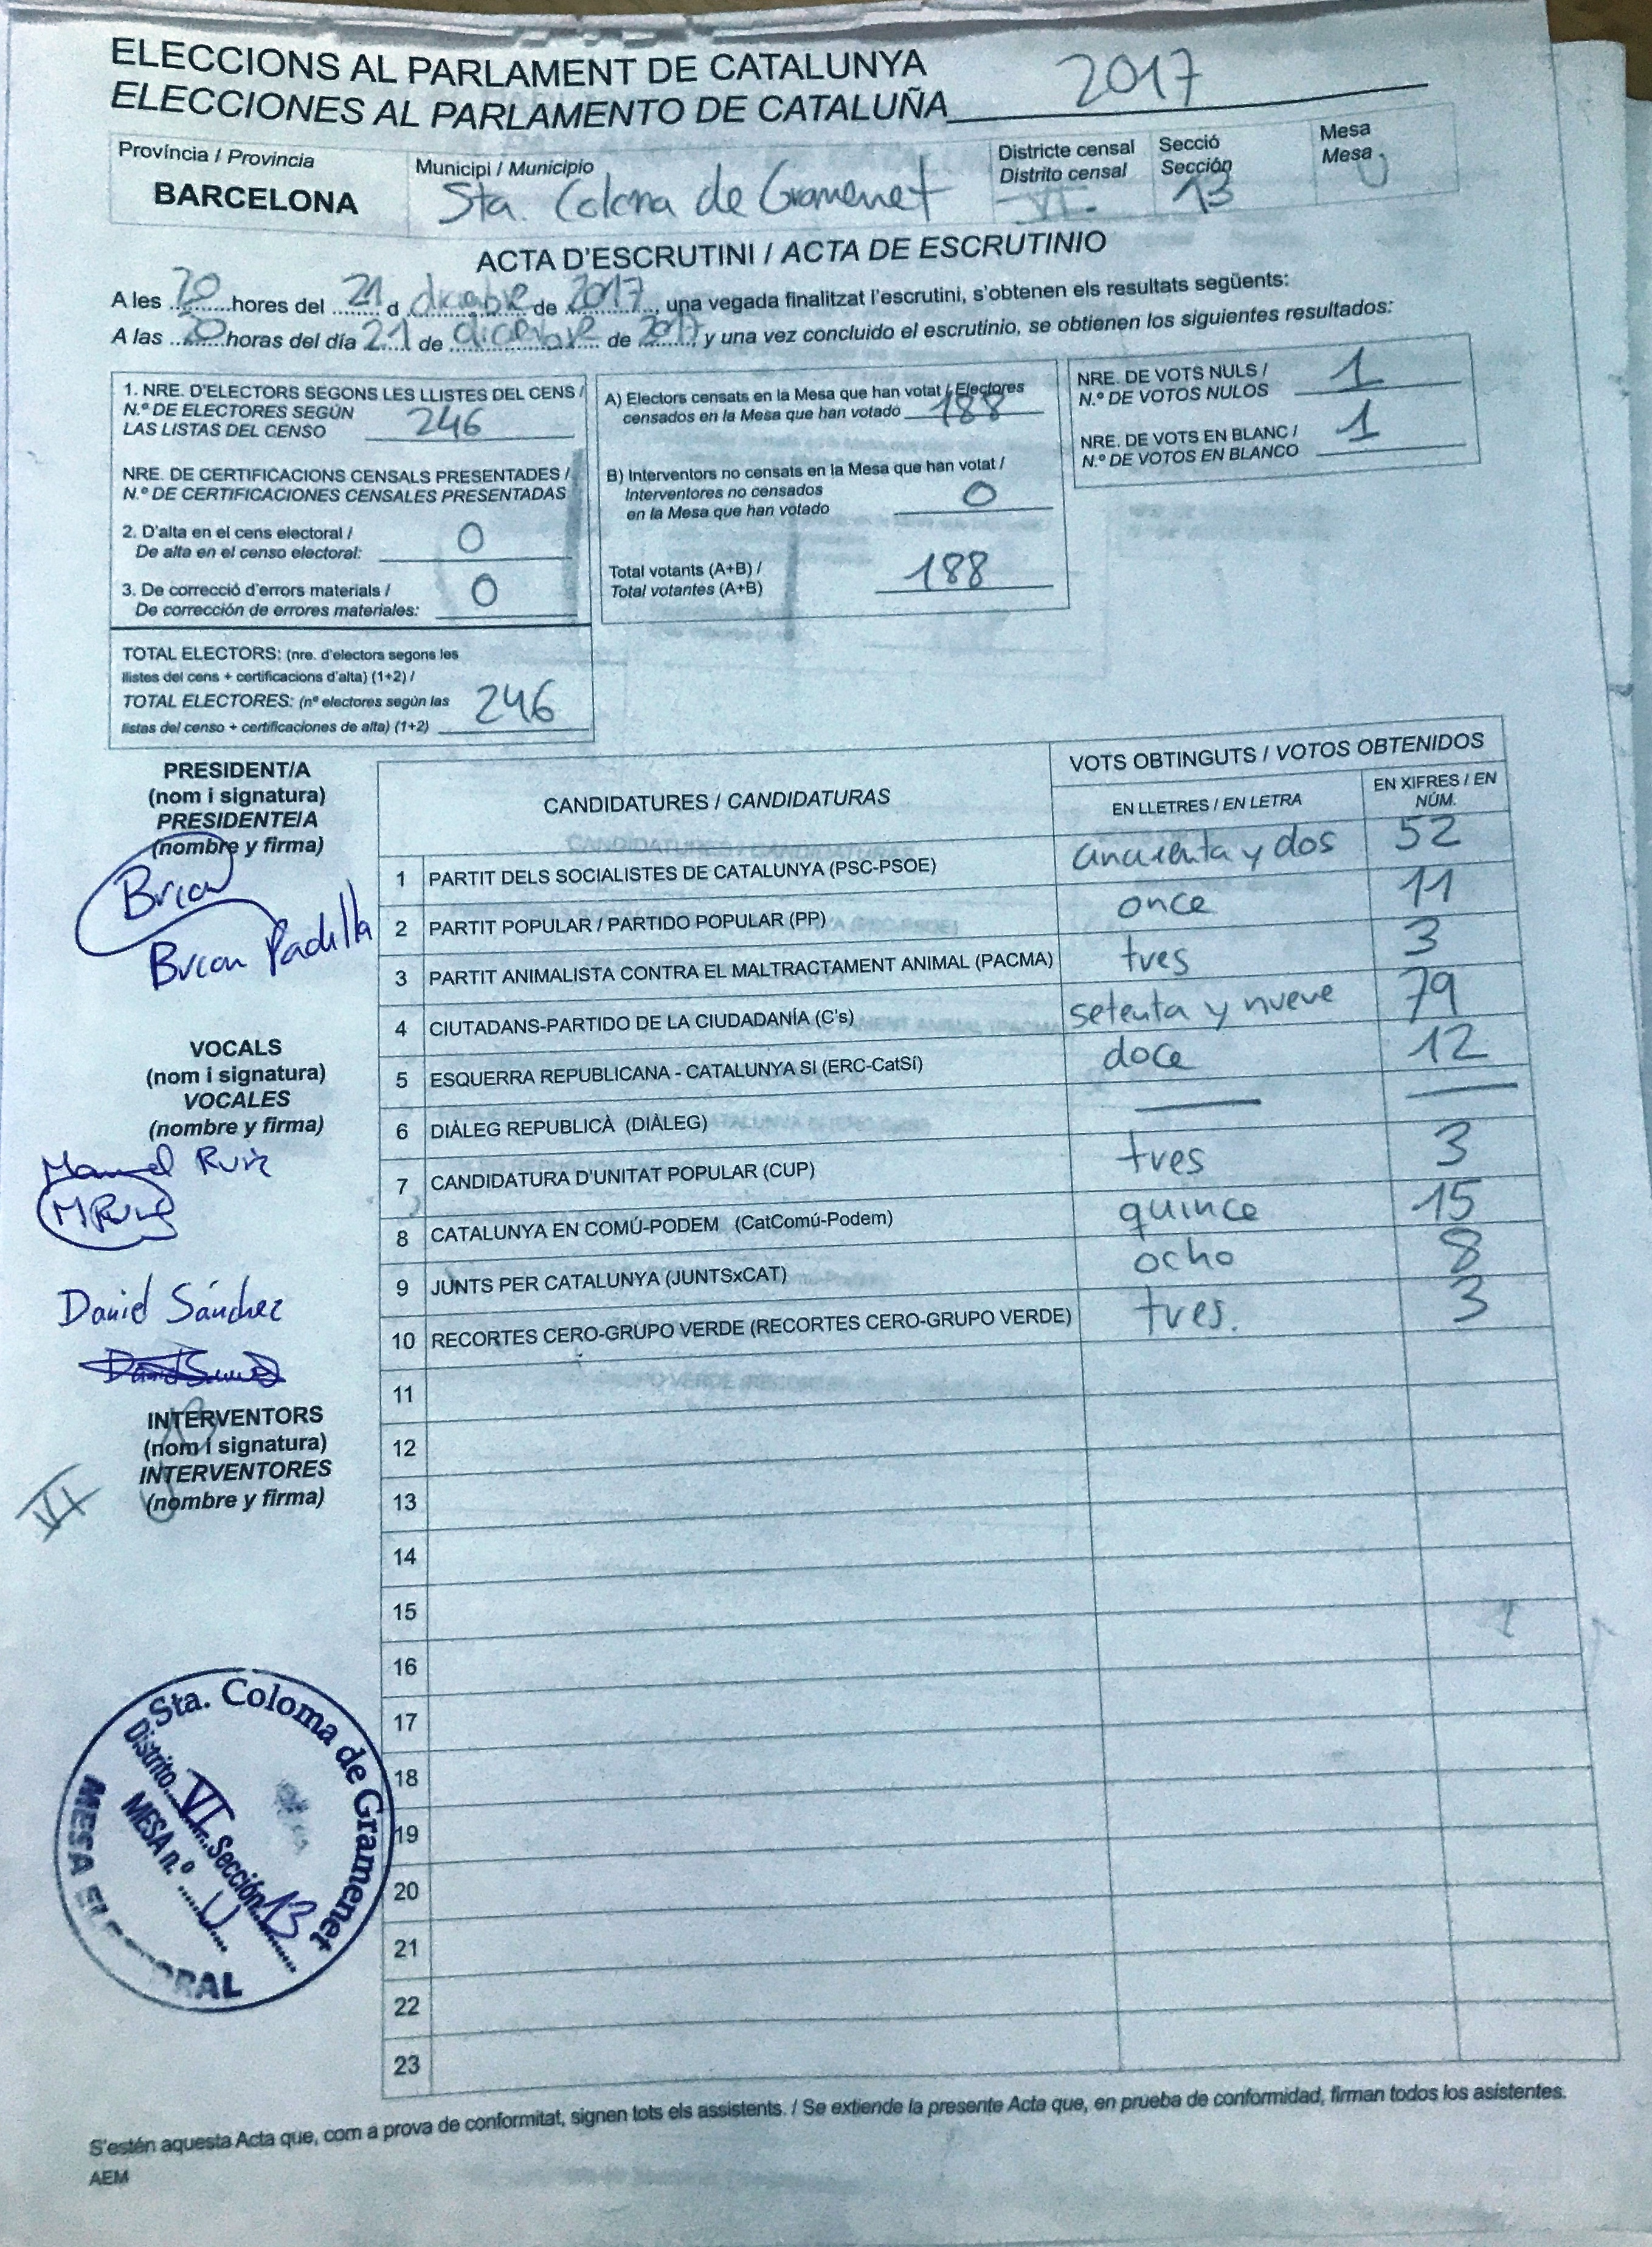 ELECCIONS AL PARLAMENT DE CATALUNYA
ELECCIONES AL PARLAMENTO DE CATALUÑA 2017
Província / Provincia
BARCELONA
Municipi / Municipio
Sta. Coloma de Gramenet
Districte censal
Distrito censal
VI.
Secció
Sección
13
Mesa
Mesa
U
ACTA D'ESCRUTINI / ACTA DE ESCRUTINIO
A les 20 hores del 21 d diciembre de 2017, una vegada finalitzat l'escrutini, s'obtenen els resultats següents:
A las 20 horas del día 21 de diciembre de 2017 y una vez concluido el escrutinio, se obtienen los siguientes resultados:
1. NRE. D'ELECTORS SEGONS LES LLISTES DEL CENS /
N.º DE ELECTORES SEGÚN
LAS LISTAS DEL CENSO 246
NRE. DE CERTIFICACIONS CENSALS PRESENTADES /
N.º DE CERTIFICACIONES CENSALES PRESENTADAS
2. D'alta en el cens electoral /
De alta en el censo electoral: 0
3. De correcció d'errors materials /
De corrección de errores materiales: 0
TOTAL ELECTORS: (nre. d'electors segons les
llistes del cens + certificacions d'alta) (1+2) /
TOTAL ELECTORES: (nº electores según las
listas del censo + certificaciones de alta) (1+2) 246
A) Electors censats en la Mesa que han votat / Electores
censados en la Mesa que han votado 188
B) Interventors no censats en la Mesa que han votat /
Interventores no censados
en la Mesa que han votado 0
Total votants (A+B) /
Total votantes (A+B) 188
NRE. DE VOTS NULS /
N.º DE VOTOS NULOS 1
NRE. DE VOTS EN BLANC /
N.º DE VOTOS EN BLANCO 1
PRESIDENT/A
(nom i signatura)
PRESIDENTE/A
(nombre y firma)
Brian
Brian Padilla
VOCALS
(nom i signatura)
VOCALES
(nombre y firma)
Manuel Ruiz
MRuiz
David Sánchez
INTERVENTORS
(nom i signatura)
INTERVENTORES
(nombre y firma)
VI
CANDIDATURES / CANDIDATURAS
VOTS OBTINGUTS / VOTOS OBTENIDOS
EN LLETRES / EN LETRA
EN XIFRES / EN
NÚM.
1 PARTIT DELS SOCIALISTES DE CATALUNYA (PSC-PSOE) cincuenta y dos 52
2 PARTIT POPULAR / PARTIDO POPULAR (PP) once 11
3 PARTIT ANIMALISTA CONTRA EL MALTRACTAMENT ANIMAL (PACMA) tres 3
4 CIUTADANS-PARTIDO DE LA CIUDADANÍA (C's) setenta y nueve 79
5 ESQUERRA REPUBLICANA - CATALUNYA SI (ERC-CatSí) doce 12
6 DIÀLEG REPUBLICÀ (DIÀLEG) — —
7 CANDIDATURA D'UNITAT POPULAR (CUP) tres 3
8 CATALUNYA EN COMÚ-PODEM (CatComú-Podem) quince 15
9 JUNTS PER CATALUNYA (JUNTSxCAT) ocho 8
10 RECORTES CERO-GRUPO VERDE (RECORTES CERO-GRUPO VERDE) tres. 3
11
12
13
14
15
16
17
18
19
20
21
22
23
Sta. Coloma de Gramenet
Distrito VI Sección 13
MESA n.º U
MESA ELECTORAL
S'estén aquesta Acta que, com a prova de conformitat, signen tots els assistents. / Se extiende la presente Acta que, en prueba de conformidad, firman todos los asistentes.
AEM